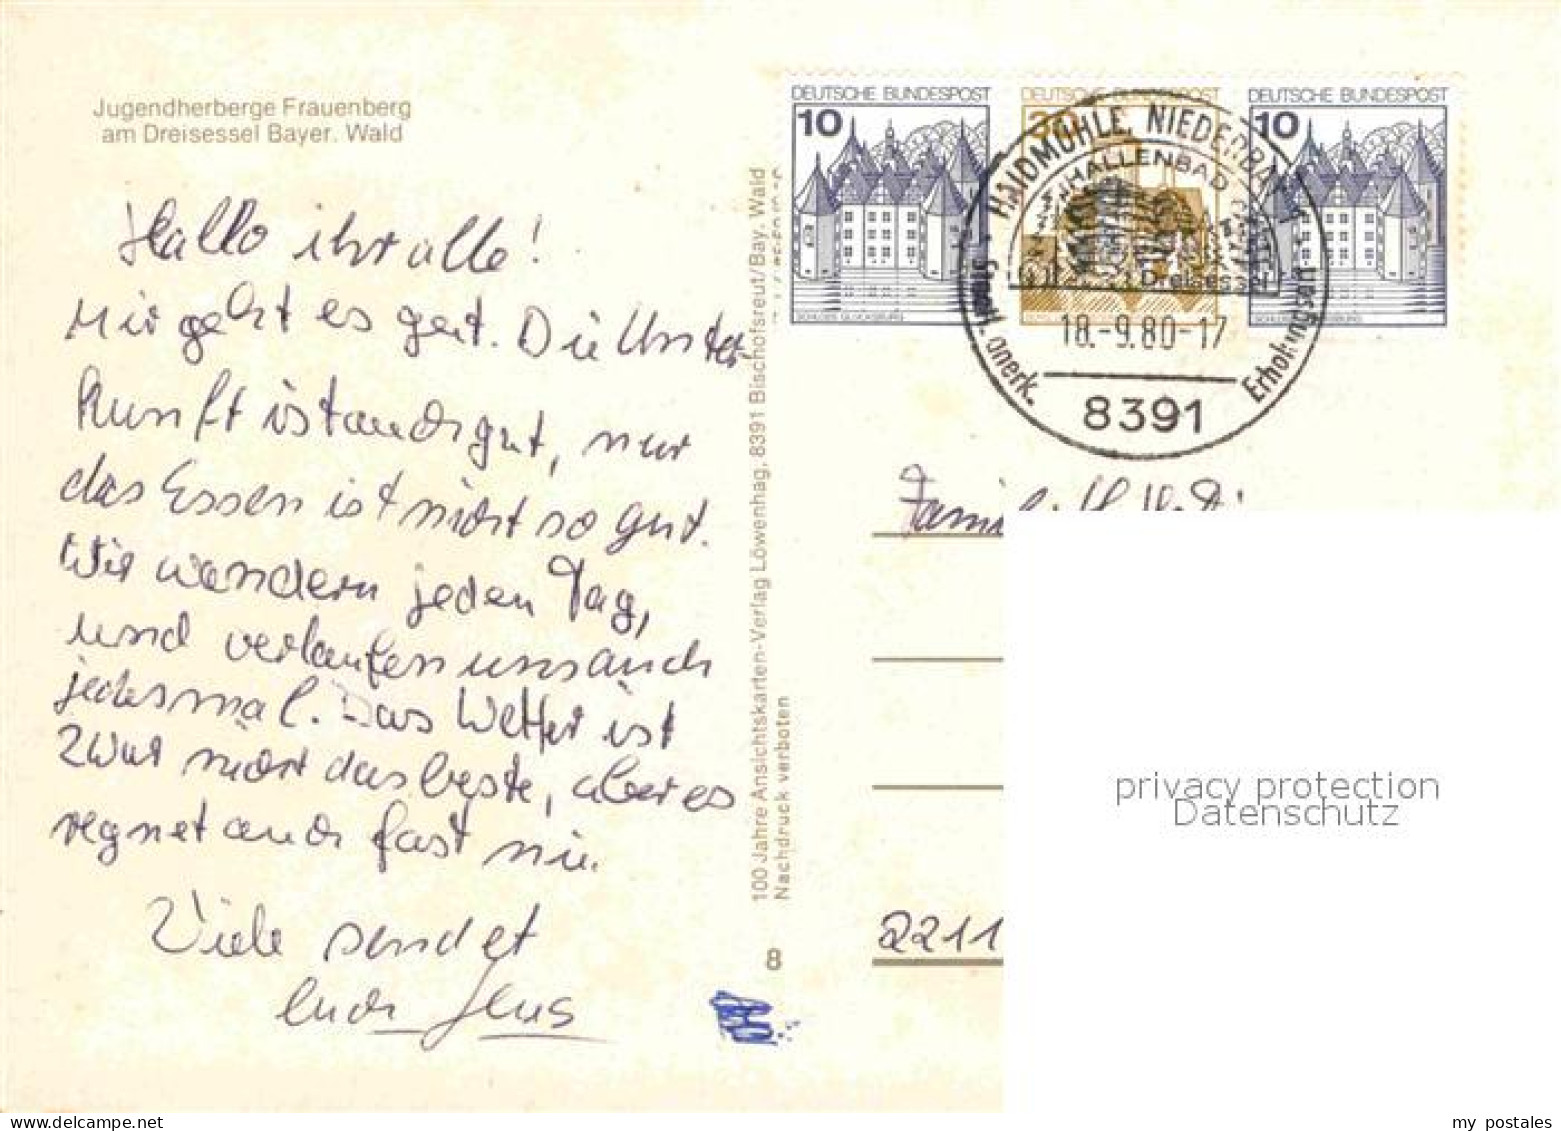 Jugendherberge Frauenberg
am Dreisessel Bayer. Wald
Hallo ihr alle!
Mir geht es gut. Die Unter
kunft ist auch gut, nur
das Essen ist nicht so gut.
Wir wandern jeden Tag,
und verlaufen uns auch
jedesmal. Das Wetter ist
zwar nicht das beste, aber es
regnet auch fast nie.
Viele sendet
euch Jens
100 Jahre Ansichtskarten-Verlag Löwenhag, 8391 Bischofsreut/Bay. Wald
Nachdruck verboten
8
DEUTSCHE BUNDESPOST
10
SCHLOSS GLÜCKSBURG
DEUTSCHE BUNDESPOST
30
DEUTSCHE BUNDESPOST
10
SCHLOSS GLÜCKSBURG
HAIDMÜHLE, NIEDERBAY
HALLENBAD
Dreisessel
18.-9.80-17
staatl. anerk.
Erholungsort
8391
2211
privacy protection
Datenschutz
my postales